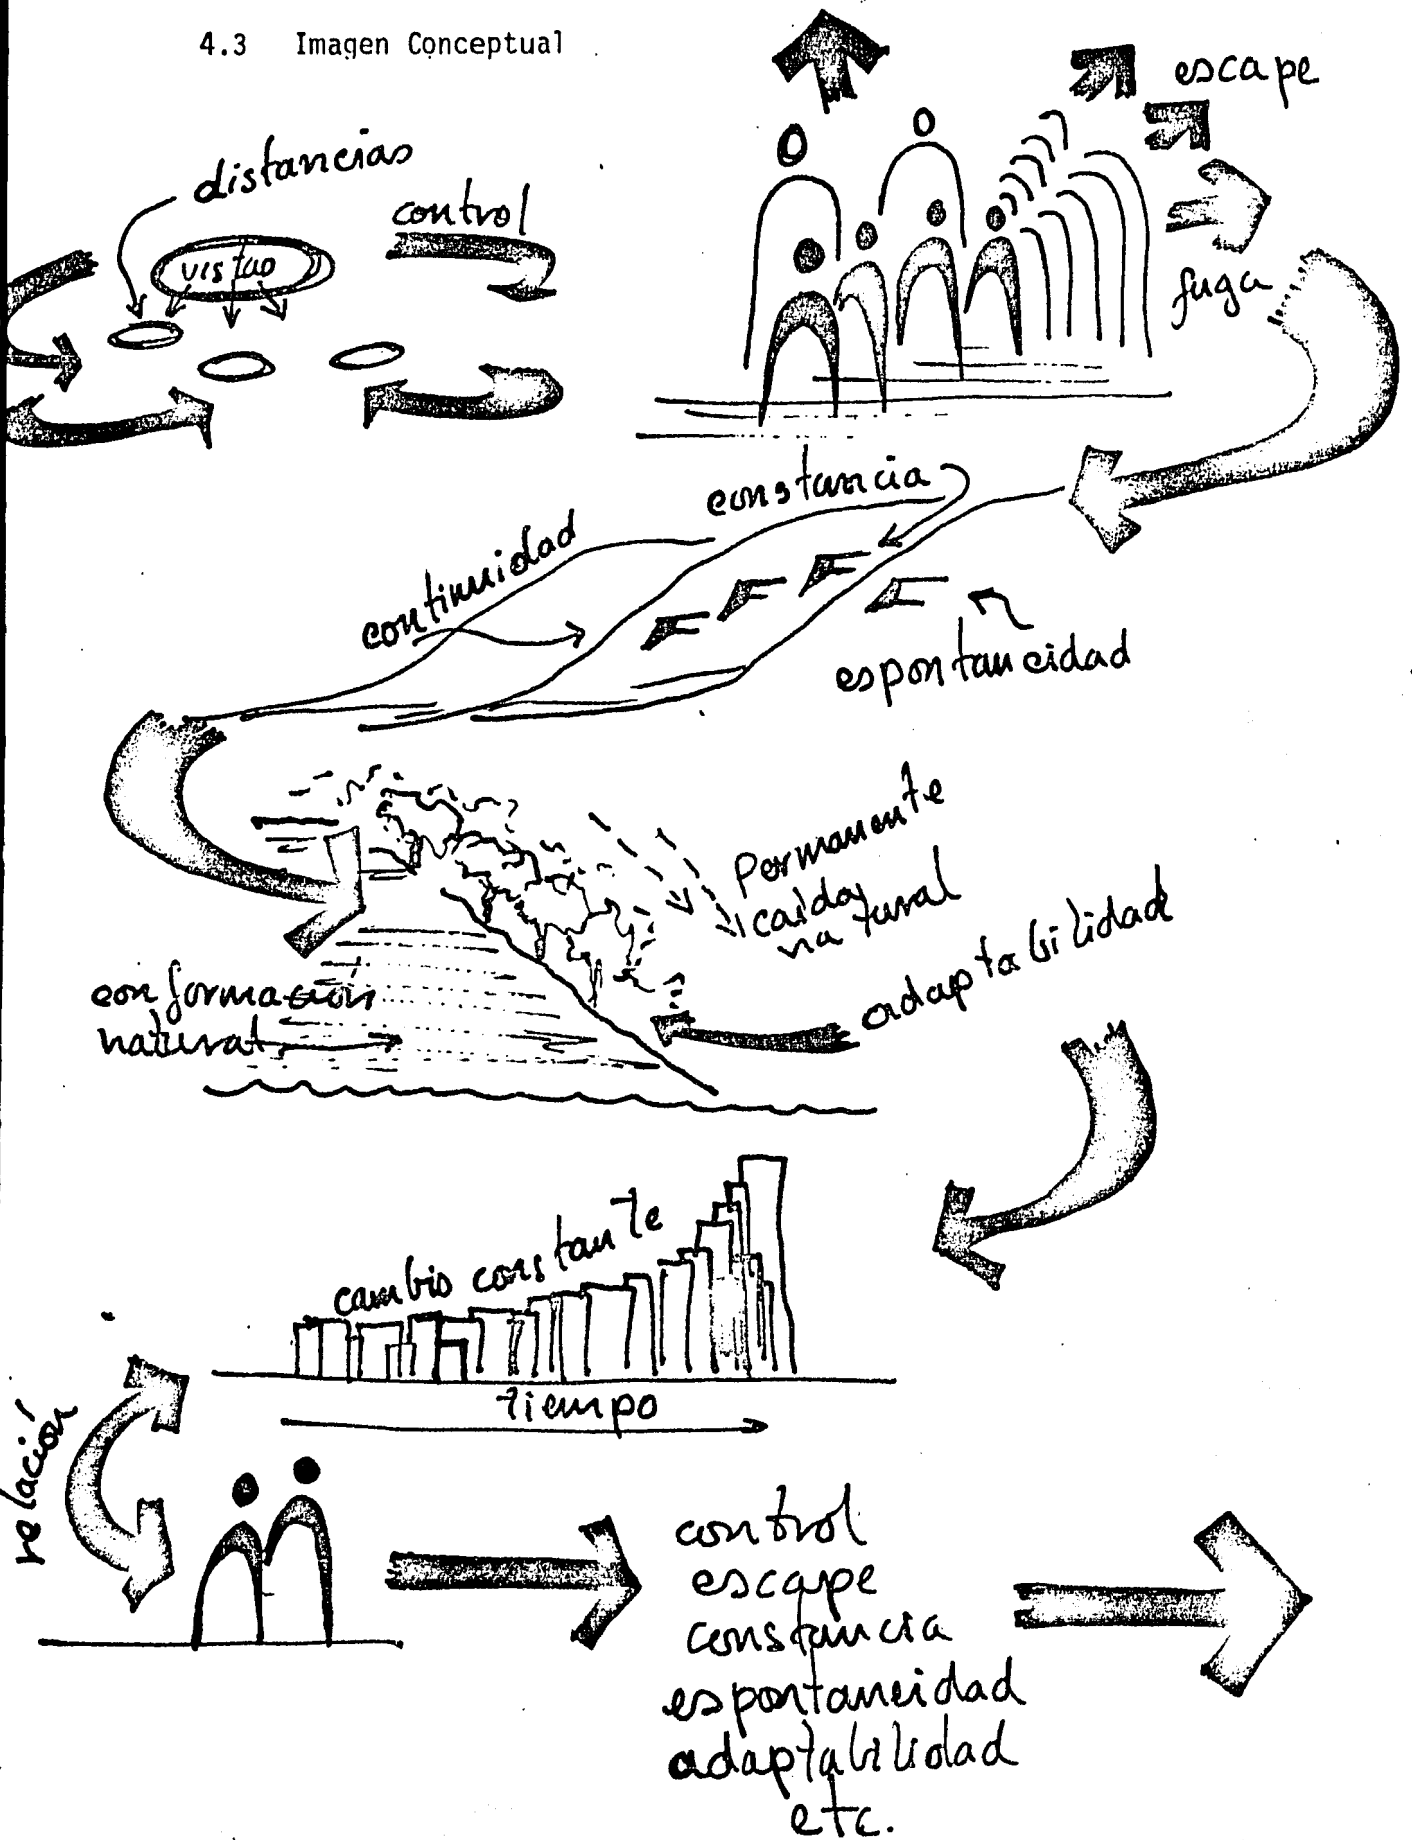 4.3 Imagen Conceptual
distancias
control
escape
fuga
constancia
continuidad
espontaneidad
Permanente
caída
natural
adaptabilidad
conformación
natural
cambio constante
tiempo
relación
control
escape
constancia
espontaneidad
adaptabilidad
etc.